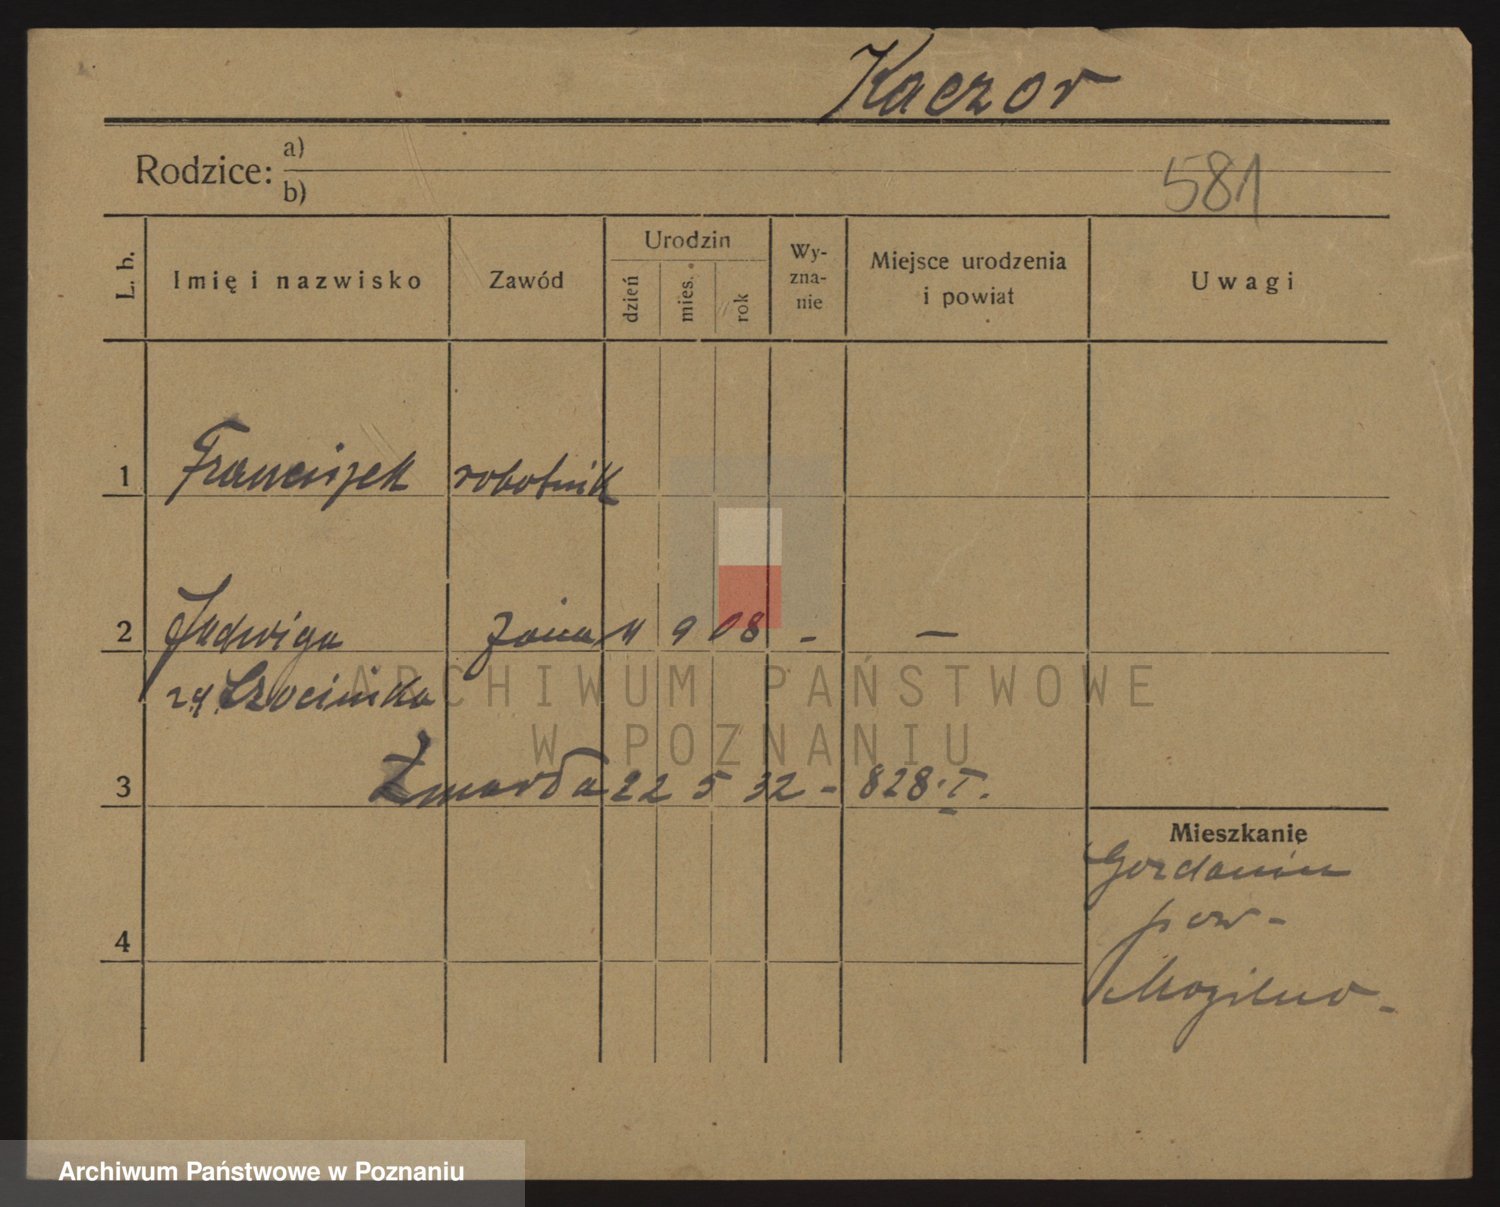 Kaczor
Rodzice: a)
b)
581
L. b. Imię i nazwisko Zawód Urodzin dzień mies. rok Wy-zna-nie Miejsce urodzenia i powiat Uwagi
1 Franciszek robotnik
2 Jadwiga żona 11 9 08 - —
3 Zmarła 22 5 32 - 828. I.
Mieszkanie
Gozdanin
pow-
Mogilno-
4
ARCHIWUM PAŃSTWOWE
W POZNANIU
Archiwum Państwowe w Poznaniu